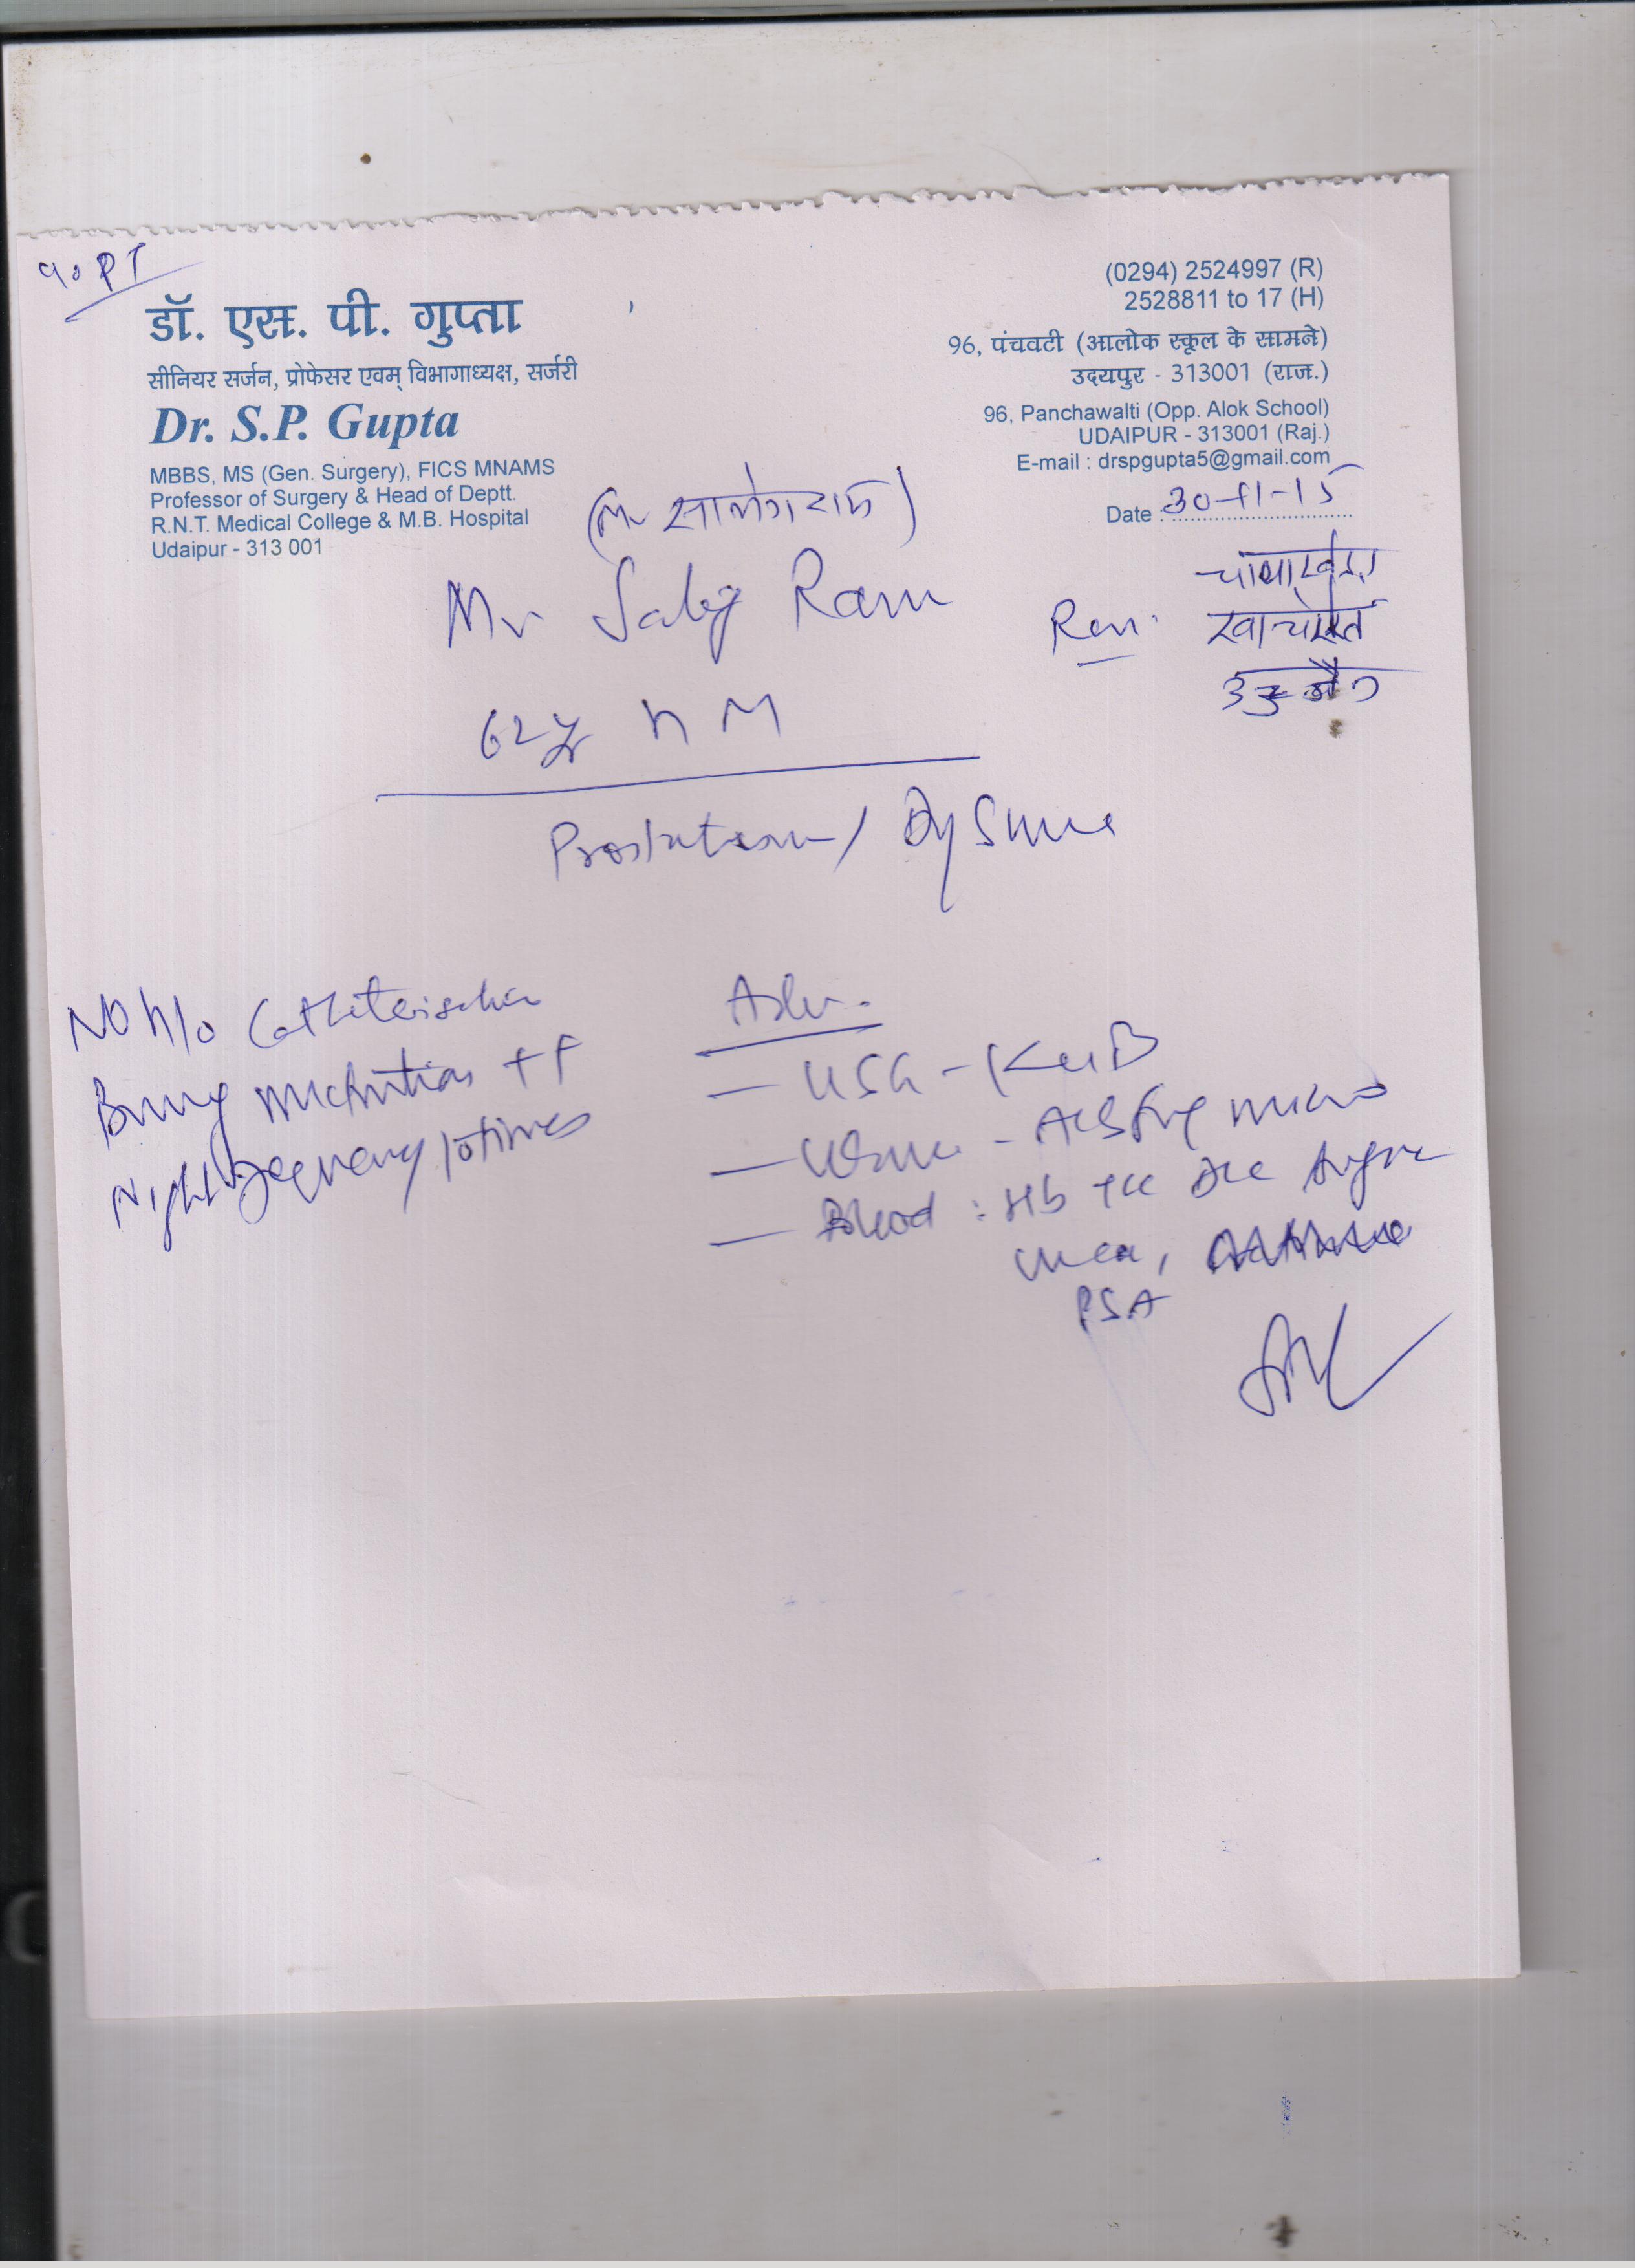 डॉ. एस. पी. गुप्ता
सीनियर सर्जन, प्रोफेसर एवम् विभागाध्यक्ष, सर्जरी
Dr. S.P. Gupta
MBBS, MS (Gen. Surgery), FICS MNAMS
Professor of Surgery & Head of Deptt.
R.N.T. Medical College & M.B. Hospital
Udaipur - 313 001
(0294) 2524997 (R)
2528811 to 17 (H)
96, पंचवटी (आलोक स्कूल के सामने)
उदयपुर - 313001 (राज.)
96, Panchawalti (Opp. Alok School)
UDAIPUR - 313001 (Raj.)
E-mail : drspgupta5@gmail.com
Date : 30-11-15
Mr Ram
62 M
No h/o
micturition ++
Night frequency 10 times
Adv.
- USG - KUB
- Urine -
- Blood : Hb TLC DLC Sugar
Urea,
PSA